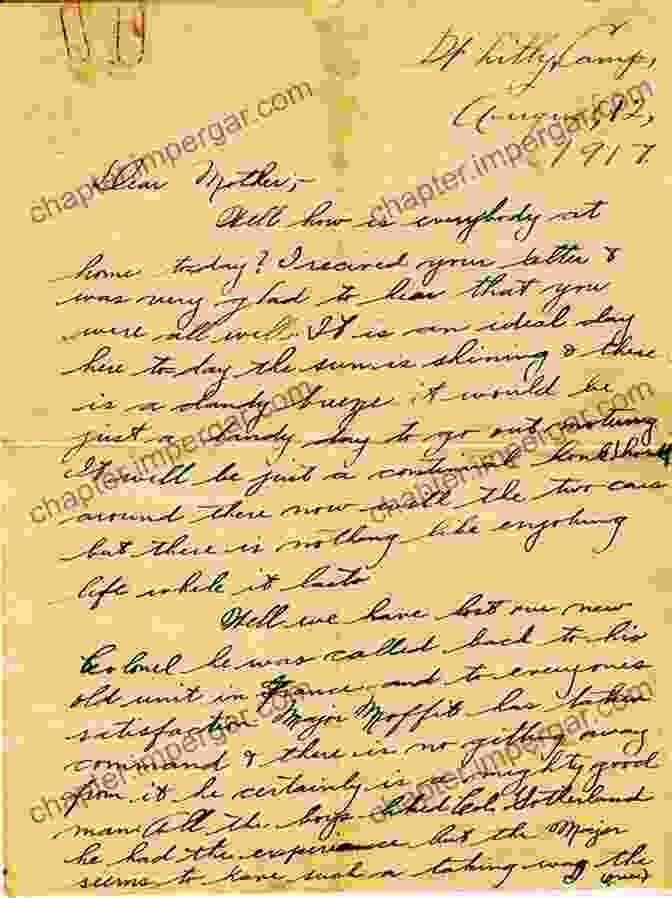 Witley Camp,
August 12,
1917
Dear Mother,-
Well how is everybody at
home to-day? I received your letter &
was very glad to hear that you
were all well. It is an ideal day
here to-day the sun is shining & there
is a dandy breeze it would be
just a dandy day to go out motoring
It will be just a continual honk honk
around there now with the two cars
but there is nothing like enjoying
life while it lasts
Well we have lost our new
Colonel he was called back to his
old unit in France and to everyones
satisfaction Major Moffit has taken
command & there is no getting away
from it he certainly is a mighty good
man. All the boys liked Col. Sutherland
he had the experience but the Major
seems to have such a taking way the
(over)
chapter.impergar.com
chapter.impergar.com
chapter.impergar.com
chapter.impergar.com
chapter.impergar.com
chapter.impergar.com